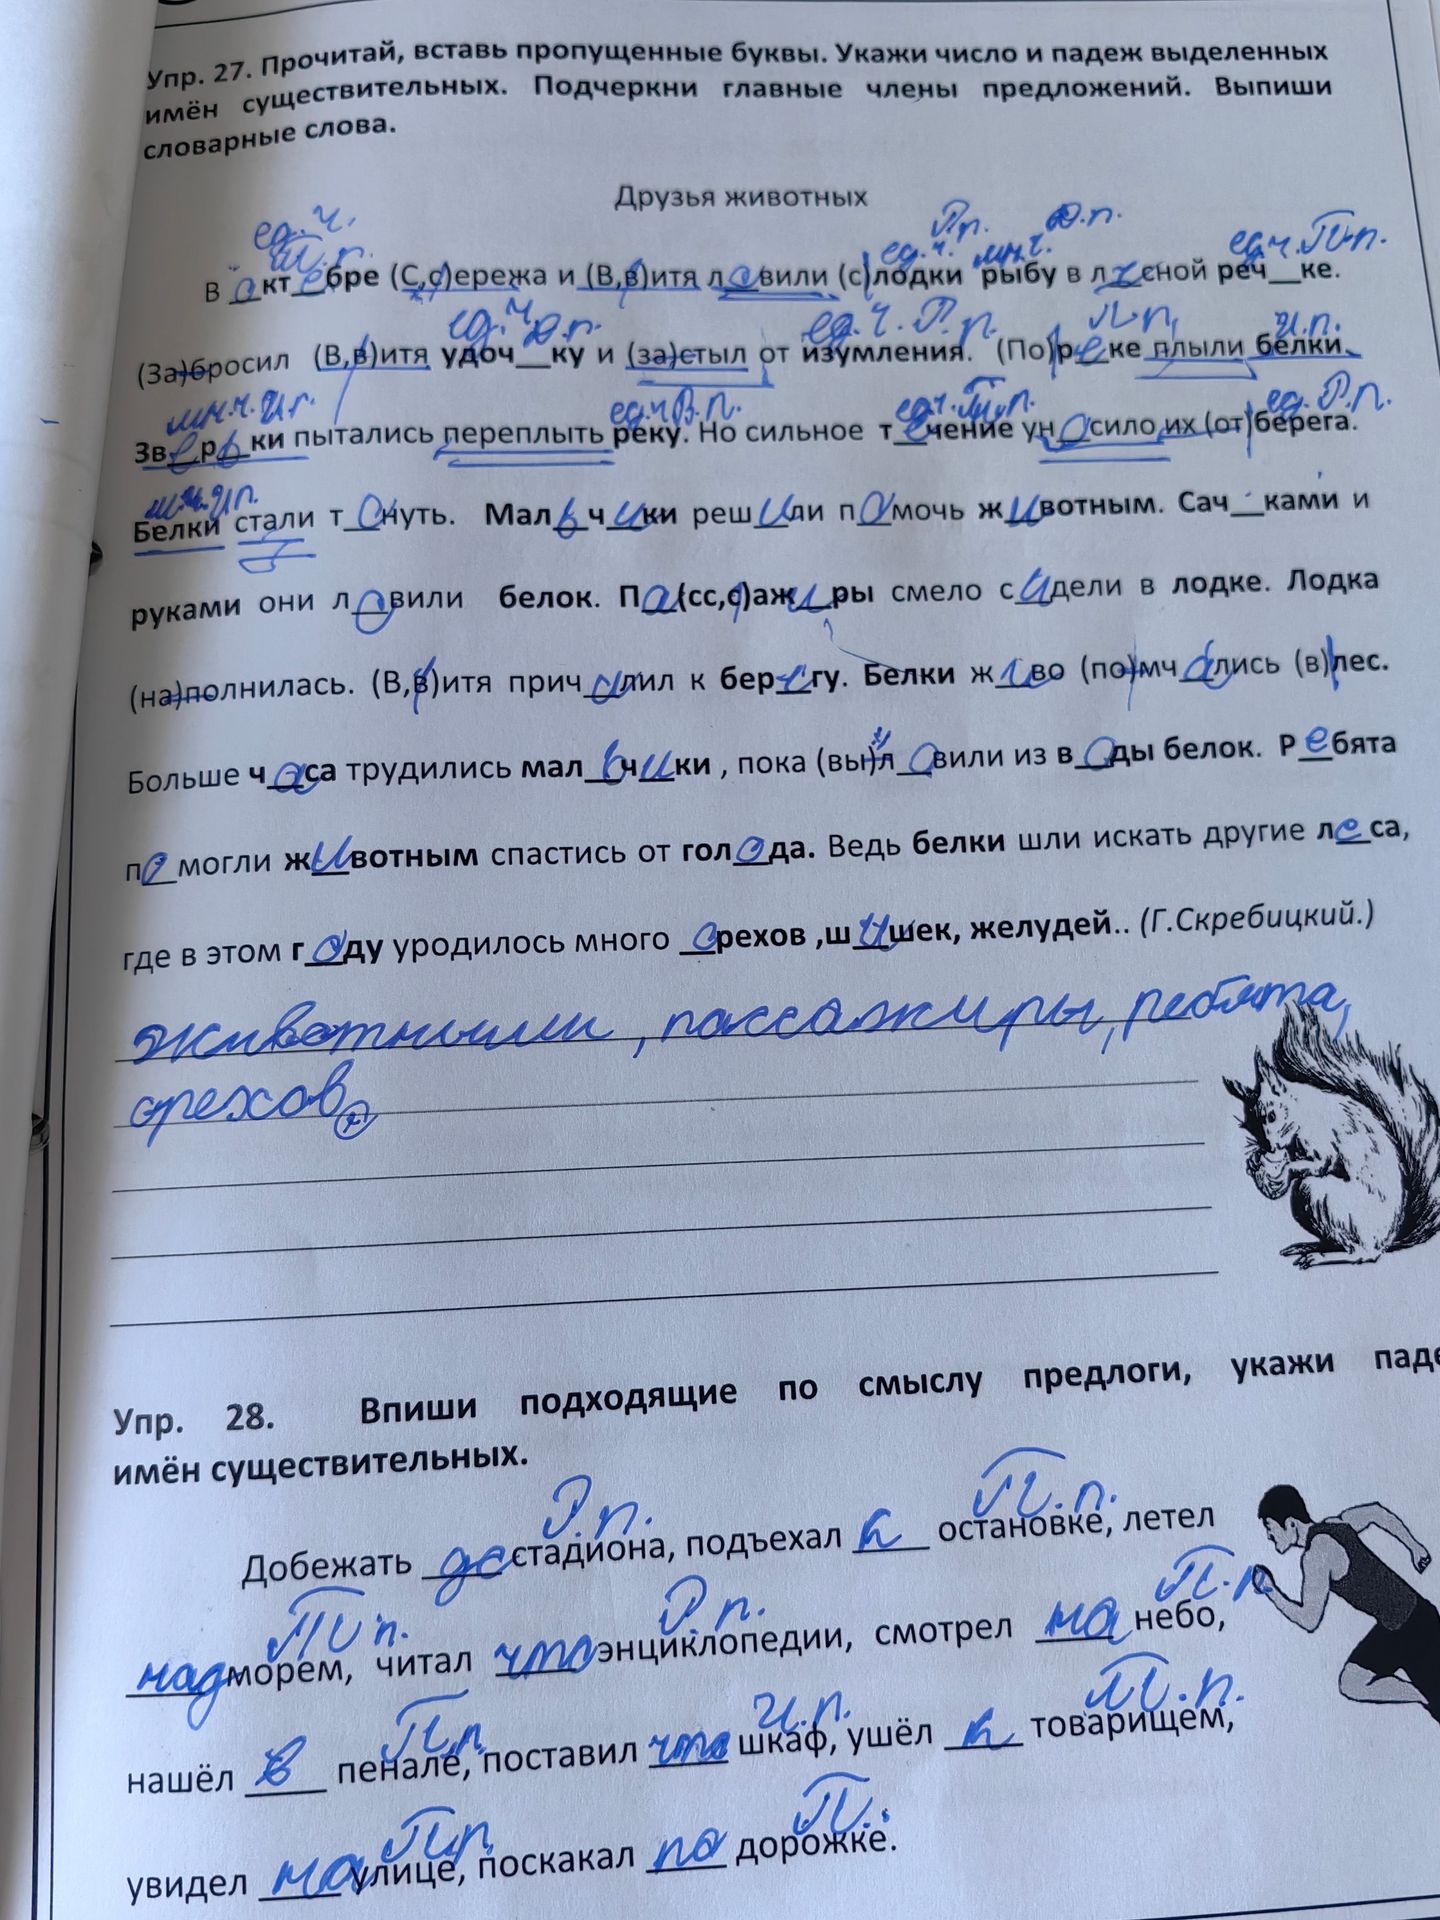 Упр. 27. Прочитай, вставь пропущенные буквы. Укажи число и падеж выделенных
имён существительных. Подчеркни главные члены предложений. Выпиши
словарные слова.
Друзья животных
ед. ч. Р.п. Д.п.
П.п. ед.ч. мн.ч. ед.ч. П.п.
В октебре (С,с)ережа и (В,в)итя ловили (с)лодки рыбу в лесной реч__ке.
ед.ч. Д.п. ед.ч. Р.п. П.п. И.п.
(За)бросил (В,в)итя удоч__ку и (за)стыл от изумления. (По)реке плыли белки.
мн.ч. И.п. ед.ч В.п. ед.ч. П.п. ед. Р.п.
Зверьки пытались переплыть реку. Но сильное течение уносило их (от)берега.
мн.ч. И.п.
Белки стали тонуть. Мальчики решили памочь животным. Сач__ками и
руками они ловили белок. Па(сс,с)ажиры смело сидели в лодке. Лодка
(на)полнилась. (В,в)итя причалил к берегу. Белки живо (по)мчались (в)лес.
Больше часа трудились мальчики , пока (вы)ловили из воды белок. Ребята
помогли животным спастись от голода. Ведь белки шли искать другие леса,
где в этом году уродилось много орехов ,шишек, желудей.. (Г.Скребицкий.)
животными, пассажиры, ребята,
орехов
Упр. 28. Впиши подходящие по смыслу предлоги, укажи паде
имён существительных.
Р.п. П.п.
Добежать до стадиона, подъехал к остановке, летел
П.п. Р.п. П.п.
над морем, читал что энциклопедии, смотрел на небо,
П.п. И.п. П.п.
нашёл в пенале, поставил что шкаф, ушёл к товарищем,
П.п. П.
увидел на улице, поскакал по дорожке.